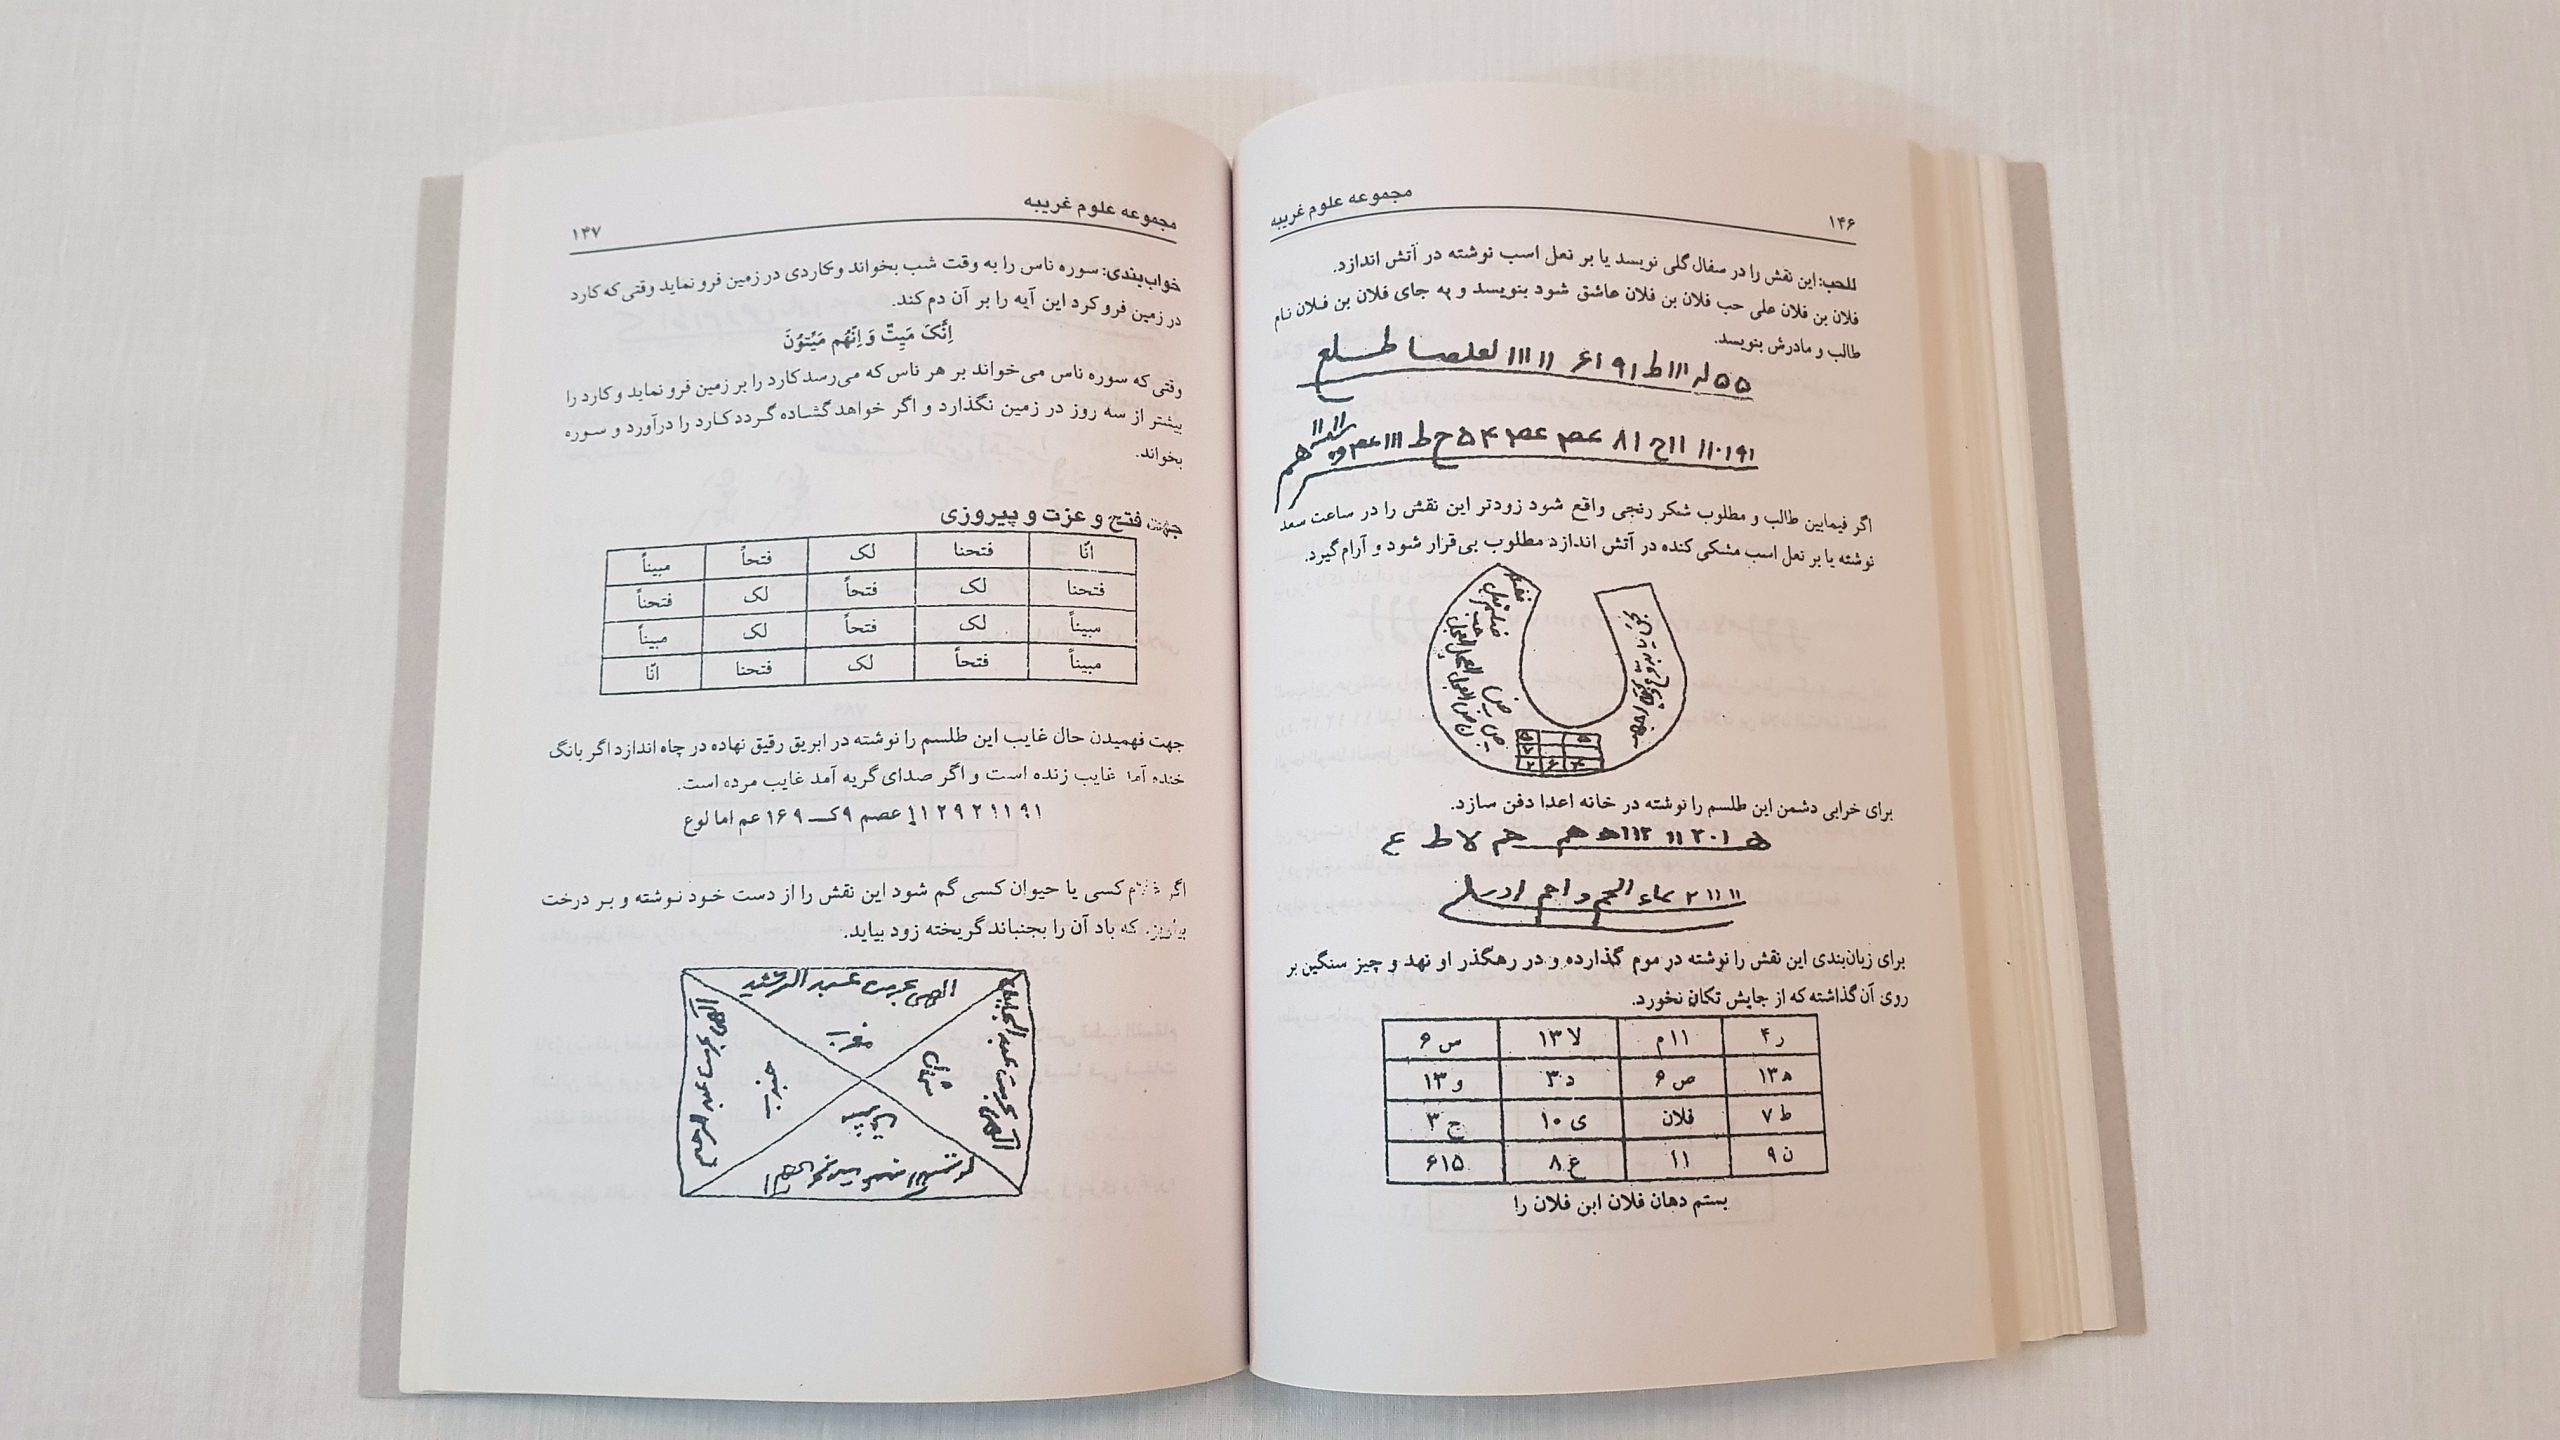 ۱۴۶
مجموعه علوم غریبه
للحب: این نقش را در سفال گلی نویسد یا بر نعل اسب نوشته در آتش اندازد.
فلان بن فلان علی حب فلان بن فلان عاشق شود بنویسد و به جای فلان بن فلان نام
طالب و مادرش بنویسد.
اگر فیمابین طالب و مطلوب شکر رنجی واقع شود زودتر این نقش را در ساعت سعد
نوشته یا بر نعل اسب مشکی کنده در آتش اندازد مطلوب بی‌قرار شود و آرام گیرد.
برای خرابی دشمن این طلسم را نوشته در خانه اعدا دفن سازد.
برای زبان‌بندی این نقش را نوشته در موم گذارده و در رهگذر او نهد و چیز سنگین بر
روی آن گذاشته که از جایش تکان نخورد.
ر ۴ ۱۱ م لا ۱۳ س ۶
ه ۱۳ ص ۶ د ۳ و ۱۳
ط ۷ فلان ی ۱۰ ج ۳
ن ۹ ۱۱ ع ۸ ۶۱۵
بستم دهان فلان ابن فلان را
مجموعه علوم غریبه
۱۴۷
خواب‌بندی: سوره ناس را به وقت شب بخواند و کاردی در زمین فرو نماید وقتی که کارد
در زمین فرو کرد این آیه را بر آن دم کند.
اِنَّکَ مَیِتٌ وَ اِنَّهُم مَیِّتوُنَ
وقتی که سوره ناس می‌خواند بر هر ناس که می‌رسد کارد را بر زمین فرو نماید و کارد را
بیشتر از سه روز در زمین نگذارد و اگر خواهد گشاده گردد کارد را درآورد و سوره
بخواند.
جهت فتح و عزت و پیروزی
انّا فتحنا لک فتحاً مبیناً
فتحنا لک فتحاً لک فتحناً
مبیناً لک فتحاً لک مبیناً
مبیناً فتحاً لک فتحنا انّا
جهت فهمیدن حال غایب این طلسم را نوشته در ابریق رقیق نهاده در چاه اندازد اگر بانگ
خنده آمد غایب زنده است و اگر صدای گریه آمد غایب مرده است.
۱۱۲۹۲۱۱۹۱ عصم ۹ ک ۱۶۹ عم اما لوع
اگر غلام کسی یا حیوان کسی گم شود این نقش را از دست خود نوشته و بر درخت
بیاویزد که باد آن را بجنباند گریخته زود بیاید.
الهی بحرمت عبد الرشید
الهی بحرمت عبد الجلیل
الهی بحرمت عبد الرحیم
جنوب